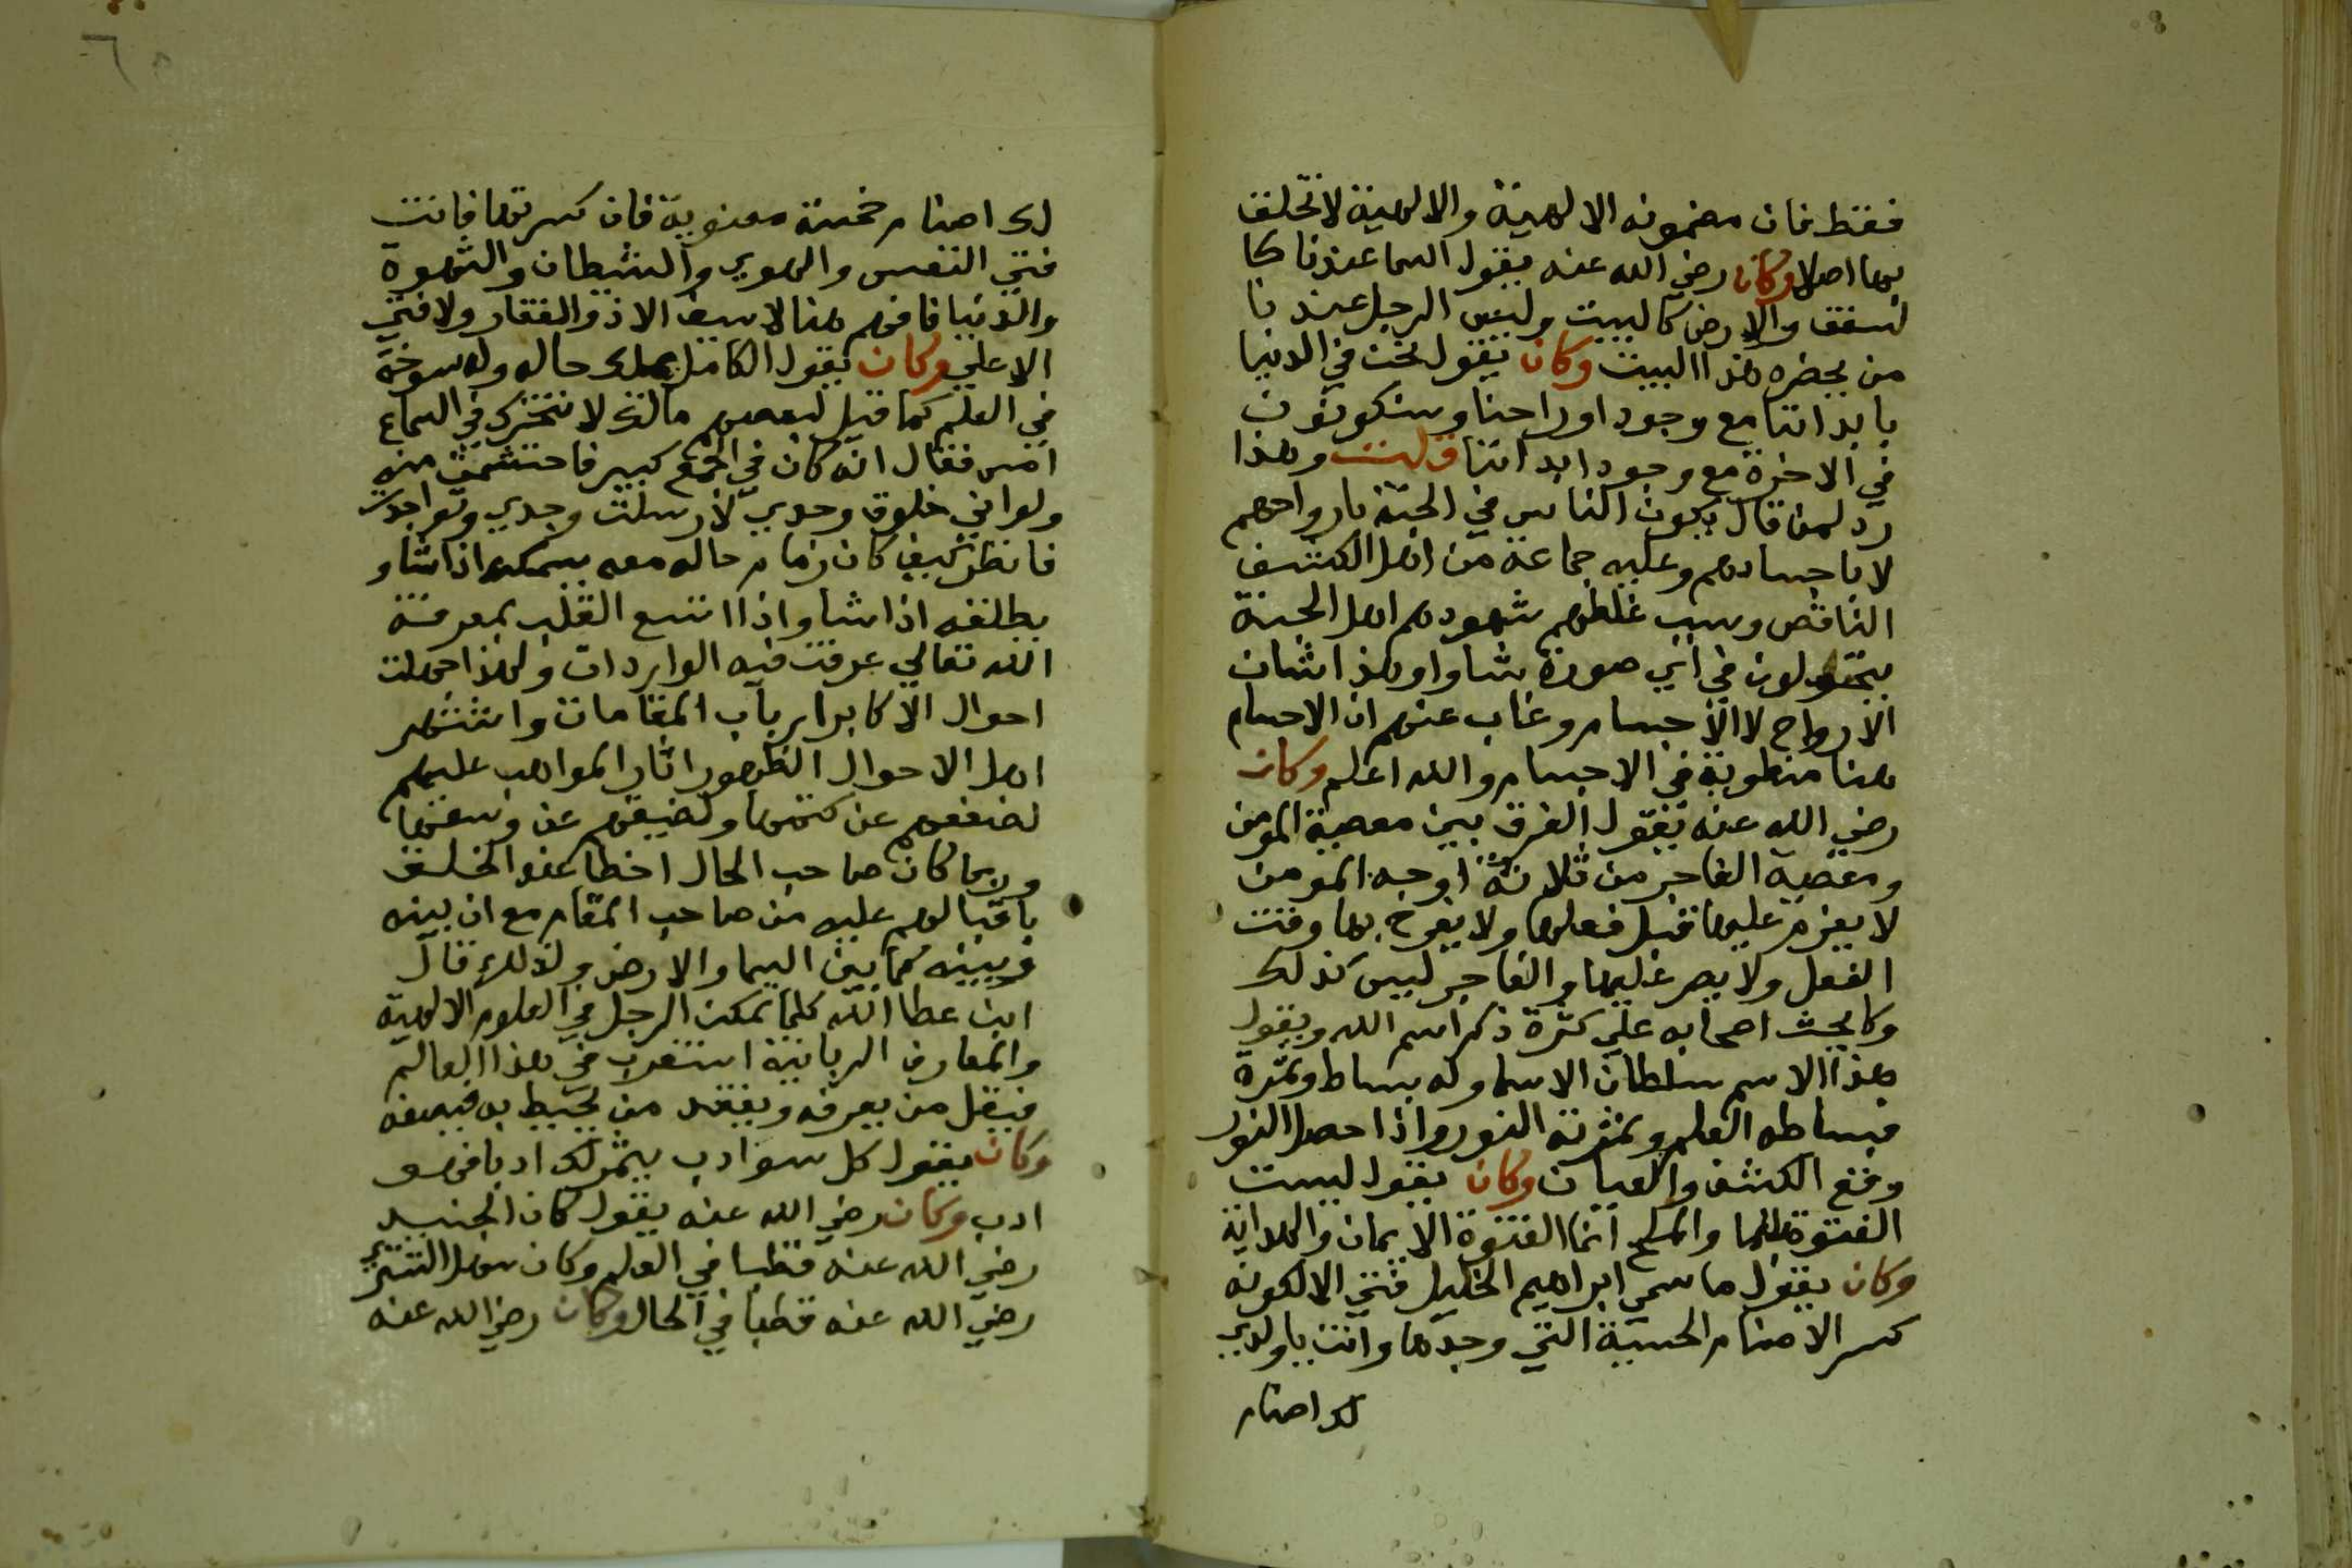 فقط فان مضمونه الالهية والالهية لا تخلق
بها اصلا وكان رضي الله عنه يقول السما عندنا كا
لسقف والارض كالبيت وليس الرجل عندنا
من يحضره هذا البيت وكان يقول نحن في الدنيا
بابداننا مع وجود اوراحنا وسنكونون
في الاخرة مع وجود ابداننا قلت وهذا
رد لمن قال يكون الناس في الجنة بارواحهم
لا باجسادهم وعليه جماعة من اهل الكشف
الناقص وسبب غلطهم شهودهم اهل الجنة
يتحولون في اي صورة شاوا وهذا شان
الارواح لا الاجسام وغاب عنهم ان الاجسام
هنا منطوية في الاجسام والله اعلم وكان
رضي الله عنه يقول الفرق بين معصية المومن
ومعصية الفاجر من ثلاثة اوجه المومن
لا يعزم عليها قبل فعلها ولا يفرح بها وقت
الفعل ولا يصر عليها والفاجر ليس كذلك
وكا يحث اصحابه علي كثرة ذكر اسم الله ويقول
هذا الاسم سلطان الاسما وله بساط وثمرة
فبساطه العلم وثمرته النور واذا حصل النور
وقع الكشف والعيان وكان يقول ليست
الفتوة بالما والملح انما الفتوة الايمان والهداية
وكان يقول ما سمي ابراهيم الخليل فتي الا لكونه
كسر الاصنام الحسية التي وجدها وانت ياولدي
لك اصنام
٦٥
لك اصنام خمسة معنوية فان كسرتها فانت
فتي النفس والهوي والشيطان والشهوة
والدنيا فافهم هنا لا سيف الا ذو الفقار ولا فتي
الا علي وكان يقول الكامل يملك حاله وله سوخة
في العلم كما قيل لبعضهم مالك لا تتحرك في السماع
امس فقال انه كان في الجمع كبير فاحتشمت منه
ولو اني خلوت وحدي لارسلت وجدي وتواجدت
فانظر كيف كان زمام حاله معه يمسكه اذا شا و
يطلقه اذا شا واذا اتسع القلب بمعرفة
الله تعالي غرقت فيه الواردات ولهذا جهلت
احوال الاكابر ارباب المقامات واشتهر
اهل الاحوال لظهور اثار المواهب عليهم
لضعفهم عن كتمها ولضيقهم عن وسعها
وربما كان صاحب الحال احظا عند الخلق
باقبالهم عليه من صاحب المقام مع ان بينه
وبينه كما بين السما والارض ولذلك قال
ابن عطا الله كلما تمكن الرجل في العلوم الالهية
والمعارف الربانية استغرب في هذا العالم
فيقل من يعرفه ويفقد من يحيط به فيصفه
وكان يقول كل سوادب يثمر لك ادبا فهو
ادب وكان رضي الله عنه يقول كان الجنيد
رضي الله عنه قطبا في العلم وكان سهل التستري
رضي الله عنه قطبا في الحال وكان رضي الله عنه